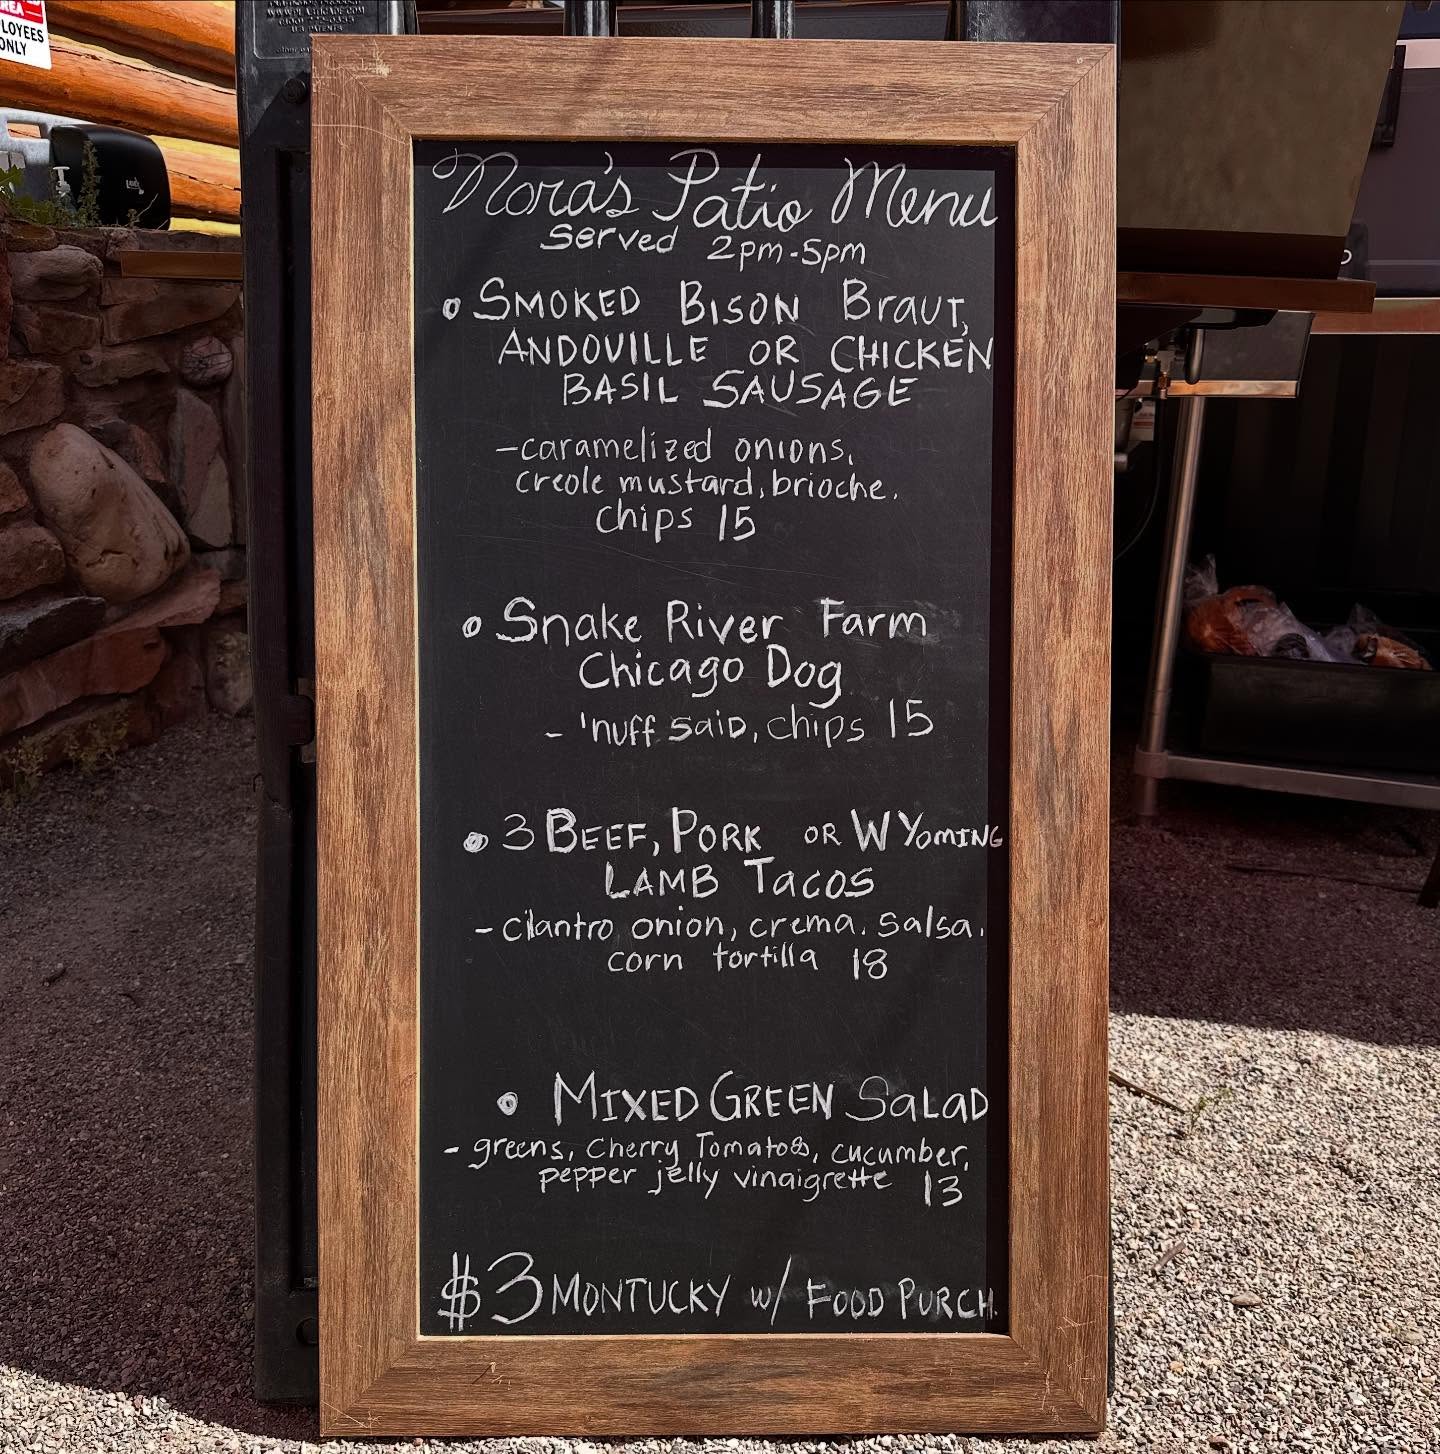 AREA
EMPLOYEES
ONLY
Nora's Patio Menu
Served 2pm-5pm
SMOKED BISON Braut,
ANDOUILLE OR CHICKEN
BASIL SAUSAGE
-caramelized onions,
creole mustard, brioche.
chips 15
Snake River Farm
Chicago Dog
- 'nuff said, chips 15
3 BEEF, PORK OR WYOMING
LAMB TACOS
- cilantro onion, crema. salsa.
corn tortilla 18
MIXED GREEN SALAD
- greens, Cherry Tomatoes, cucumber,
pepper jelly vinaigrette 13
$3 MONTUCKY w/ FOOD PURCH.